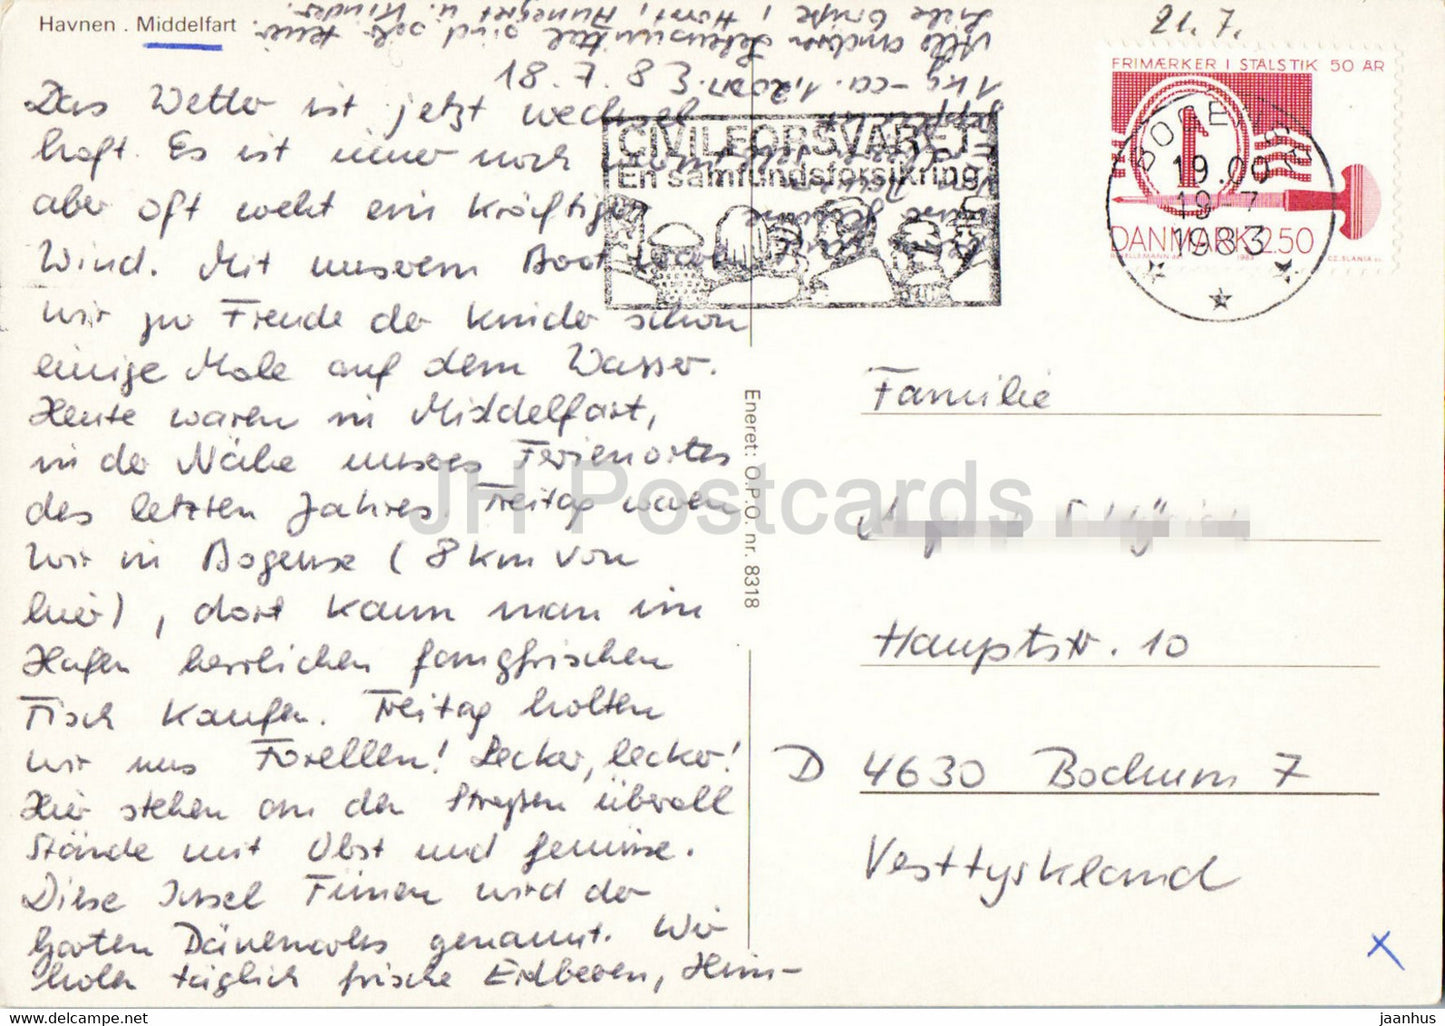 Havnen . Middelfart
21. 7.
18. 7. 83.
Das Wetter ist jetzt wechsel
haft. Es ist immer noch
aber oft weht ein kräftiger
Wind. Mit unserem Boot
wir zur Freude der Kinder schon
einige Male auf dem Wasser.
Heute waren in Middelfart,
in der Nähe unseres Ferienortes
des letzten Jahres. Freitag waren
wir in Bogense (8 km von
hier), dort kann man im
Hafen herrlichen fangfrischen
Fisch kaufen. Freitag holten
wir uns Forellen! Lecker, lecker!
Hier stehen an den Straßen überall
Stände mit Obst und Gemüse.
Diese Insel Fünen wird der
Garten Dänemarks genannt. Wir
holen täglich frische Erdbeeren, Him-
1 kg - ca.
Alle anderen Lebensmittel sind sehr teuer.
Liebe Grüße, Horst, Annegret u. Kinder.
CIVILFORSVARET
En samfundsforsikring
FRIMÆRKER I STÅLSTIK 50 ÅR
DANMARK 250
1983
CZ.SLANIA
BOGENSE
19.00
19-7
1983
Eneret: O.P.O. nr. 8318
Familie
Hauptstr. 10
D 4630 Bochum 7
Vesttyskland
X
JH Postcards
jaanhus www.delcampe.net